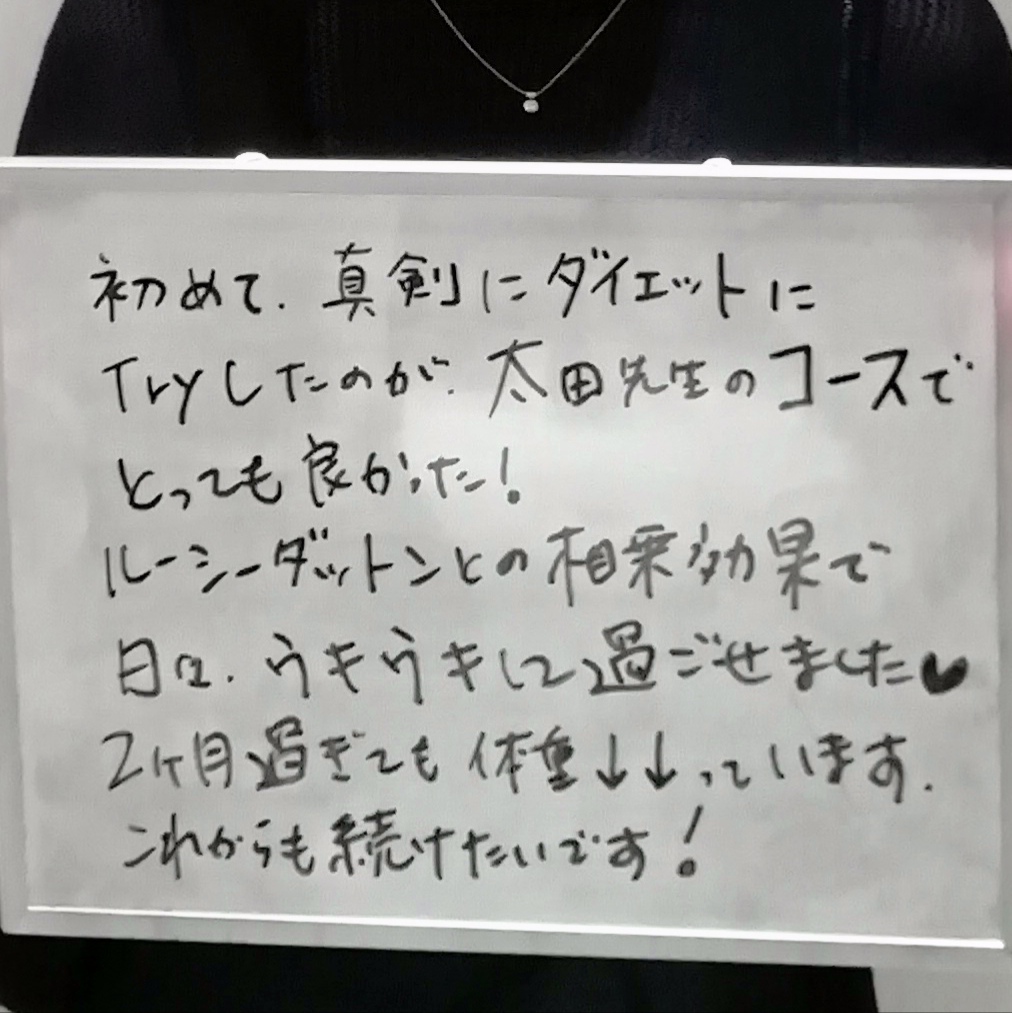 初めて、真剣にダイエットに
Tryしたのが、太田先生のコースで
とっても良かった!
ルーシーダットンとの相乗効果で
日々、ウキウキして過ごせました♥
2ヶ月過ぎても体重↓↓っています.
これからも続けたいです!